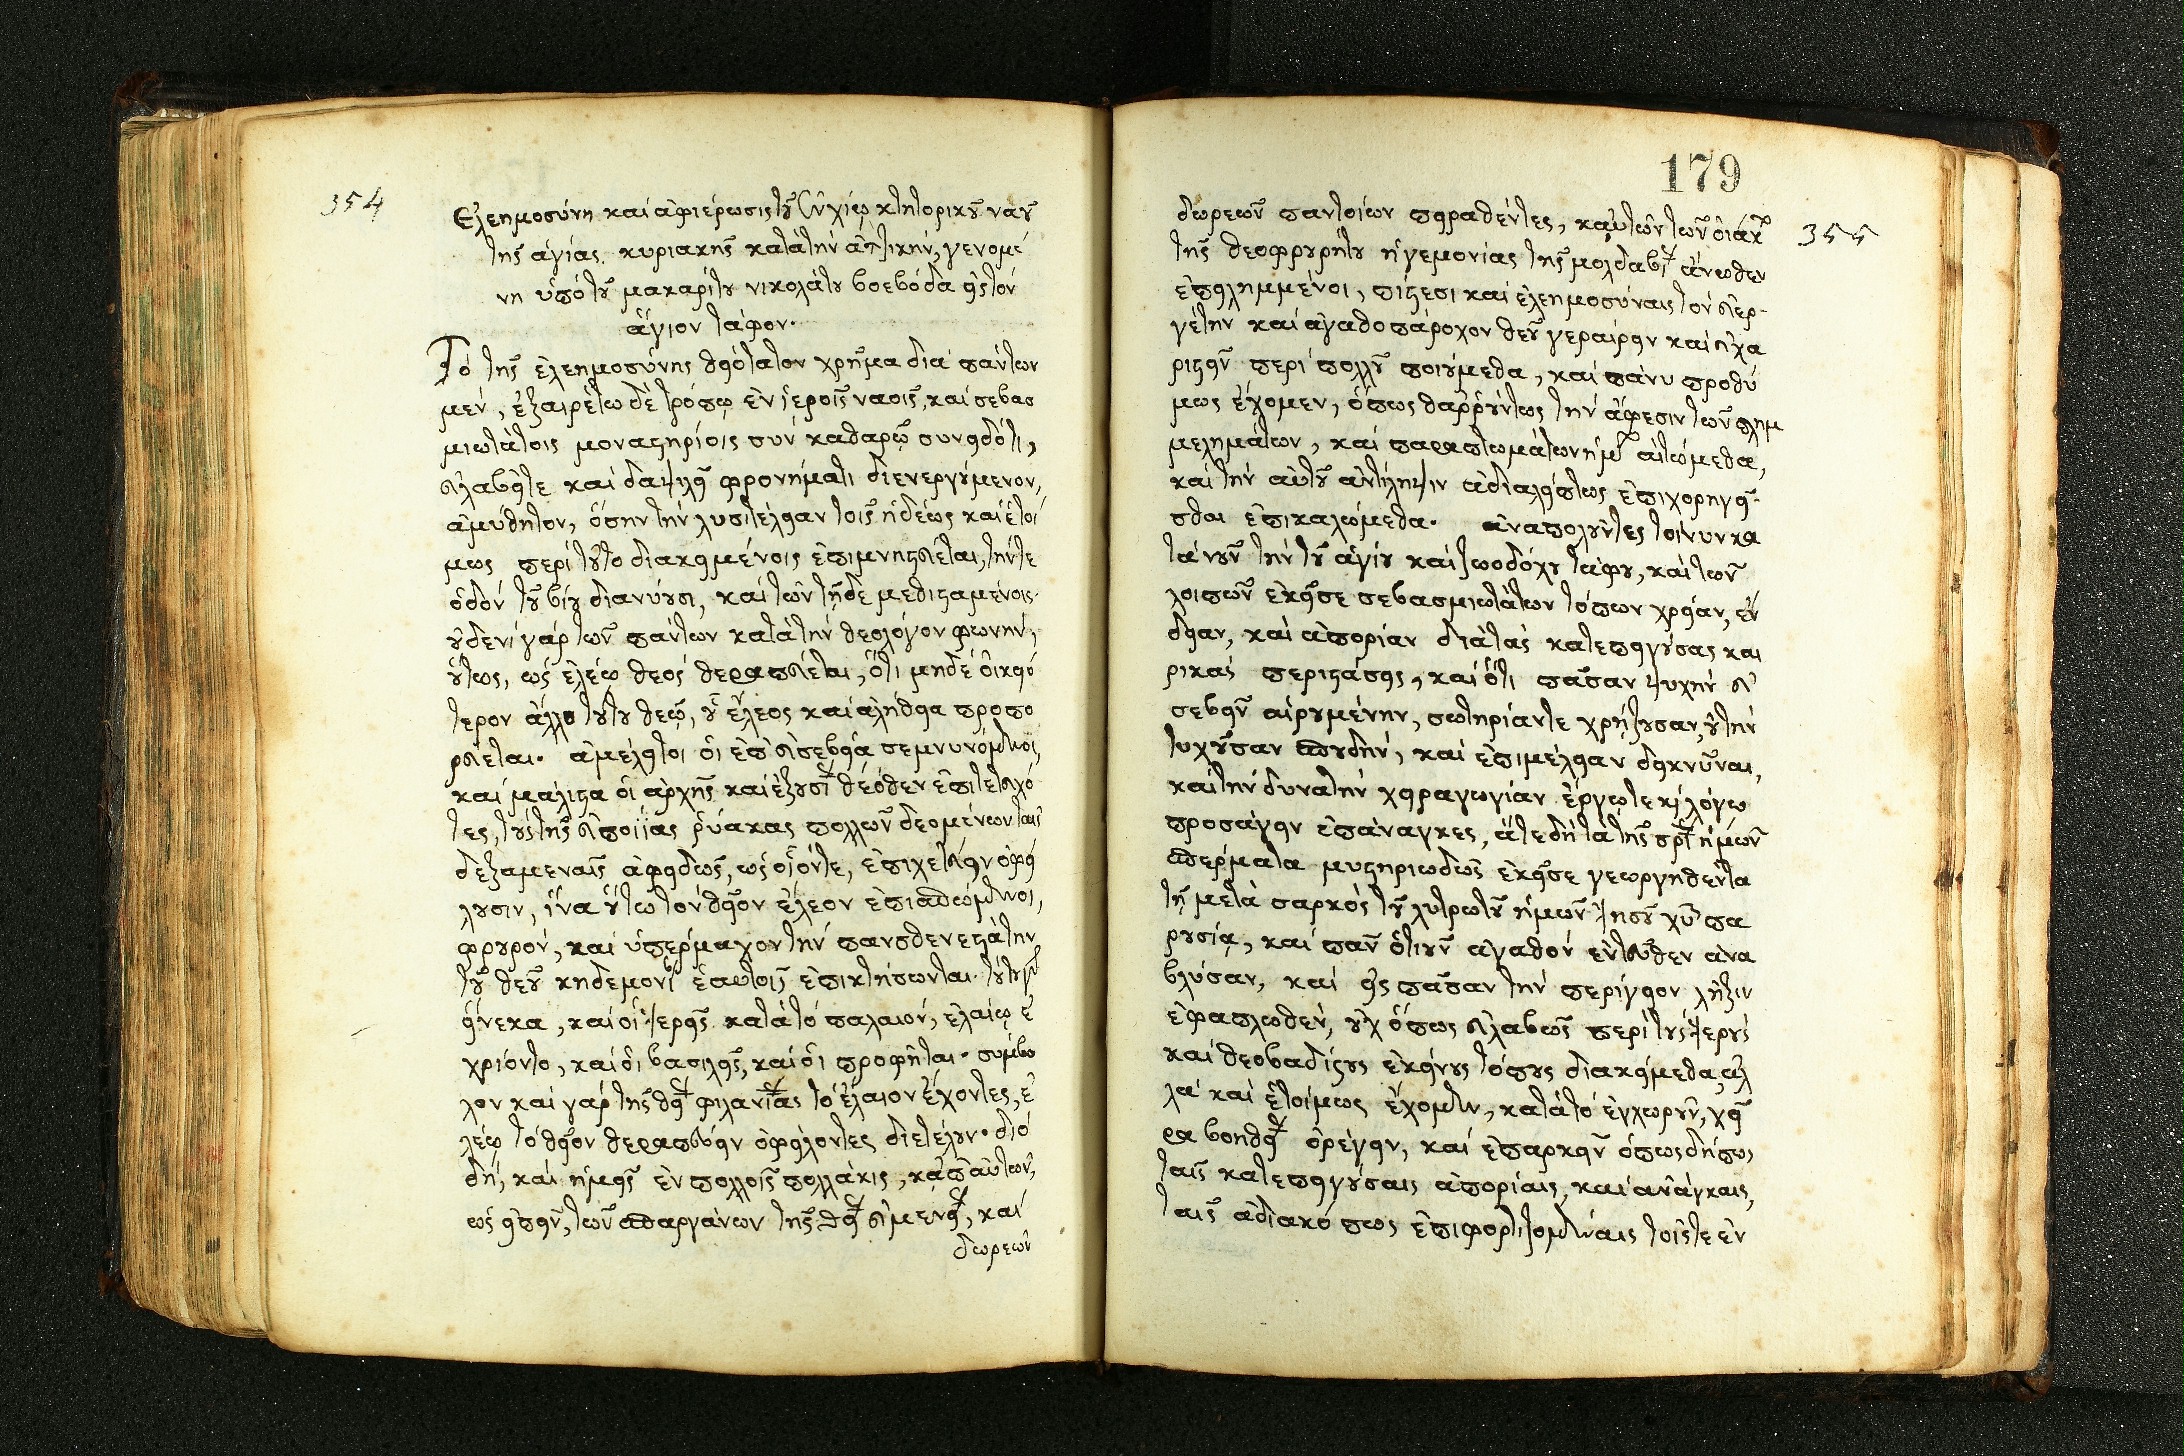 354
Ἐλεημοσύνη καὶ ἀφιέρωσις τοῦ ἐν χίῳ κτητορικοῦ ναοῦ
τῆς ἁγίας κυριακῆς κατὰ τὴν ἀτζικὴν, γενομέ
νη ὑπὸ τοῦ μακαρίτου νικολάου βοεβόδα εἰς τὸν
ἅγιον τάφον.
Τὸ τῆς ἐλεημοσύνης θειότατον χρῆμα διὰ πάντων
μὲν, ἐξαιρέτω δὲ τρόπῳ ἐν ἱεροῖς ναοῖς, καὶ σεβασ
μιωτάτοις μοναστηρίοις σὺν καθαρῷ συνειδότι,
εὐλαβεῖτε καὶ δαψιλεῖ φρονήματι διενεργούμενον,
ἀμύθητον, ὅσην τὴν λυσιτέλειαν τοῖς ἡδέως καὶ ἑτοί
μως περὶ τοῦτο διακειμένοις ἐπιμνηστεύεται, τήν τε
ὁδὸν τοῦ βίου διανύουσι, καὶ τῶν τῇδε μεθισταμένοις.
οὐδενὶ γὰρ τῶν πάντων κατὰ τὴν θεολόγον φωνὴν,
οὕτως, ὡς ἐλέῳ θεὸς θεραπεύεται, ὅτι μηδὲ οἰκειό
τερον ἄλλο τούτου θεῷ, οὗ ἔλεος καὶ ἀλήθεια προπο
ρεύεται. ἀμέλειτοι οἱ ἐπ' εὐσεβείᾳ σεμνυνόμενοι,
καὶ μάλιστα οἱ ἀρχῆς καὶ ἐξουσί θεόθεν ἐπιτετευχό
τες, τοὺς τῆς εὐποιΐας ῥύακας πολλῶν δεομένων ταῖς
δεξαμεναῖς ἀφειδῶς, ὡς οἷόντε, ἐπιχετεύειν ὀφεί
λουσιν, ἵνα οὕτω τὸν θεῖον ἔλεον ἐπισπώμενοι,
φρουρὸν, καὶ ὑπέρμαχον τὴν πανσθενεστάτην
τοῦ θεοῦ κηδεμονί ἑαυτοῖς ἐπικτήσωνται. τούτου
εἵνεκα, καὶ οἱ ἱερεῖς κατὰ τὸ παλαιὸν, ἐλαίῳ ἐ
χρίοντο, καὶ οἱ βασιλεῖς, καὶ οἱ προφῆται. σύμβο
λον καὶ γὰρ τῆς θεί φιλανίας τὸ ἔλαιον ἔχοντες, ἐ
λέῳ τὸ θεῖον θεραπεύειν ὀφείλοντες διετέλουν. διὸ
δὴ, καὶ ἡμεῖς ἐν πολλοῖς πολλάκις, κἀπ' αὐτῶν,
ὡς εἰπεῖν, τῶν σπαργάνων τῆς θεί εὐμενεί, καὶ
δωρεῶν
179
355
δωρεῶν παντοίων πειραθέντες, κἀυτῶν τῶν οἰάκ
τῆς θεοφρουρήτου ἡγεμονίας τῆς μολδαβί ἄνωθεν
ἐπειλημμένοι, πίστεσι καὶ ἐλεημοσύναις τὸν εὐερ-
γέτην καὶ ἀγαθοπάροχον θεὸν γεραίρειν καὶ εὐχα
ριστεῖν περὶ πολλοῦ ποιούμεθα, καὶ πάνυ προθύ
μως ἔχομεν, ὅπως θαῤῥούντως τὴν ἄφεσιν τῶν πλημ
μελημάτων, καὶ παραπτωμάτων ἡμ αἰτώμεθα,
καὶ τὴν αὐτοῦ ἀντίληψιν ἀδιαλείπτως ἐπιχορηγεῖ-
σθαι ἐπικαλώμεθα. ἀναπολοῦντες τοίνυν κα
τὰ νοῦν τὴν τοῦ ἁγίου καὶ ζωοδόχου τάφου, καὶ τῶν
λοιπῶν ἐκεῖσε σεβασμιωτάτων τόπων χρείαν, ἔν
δειαν, καὶ ἀπορίαν διὰ τὰς κατεπειγούσας και
ρικὰς περιστάσεις, καὶ ὅτι πᾶσαν ψυχὴν εὐ
σεβεῖν αἱρουμένην, σωτηρίαν τε χρῄζουσαν, οὐ τὴν
τυχοῦσαν σπουδὴν, καὶ ἐπιμέλειαν δεικνῦναι,
καὶ τὴν δυνατὴν χειραγωγίαν ἔργω τε κ λόγω
προσάγειν ἐπάναγκες, ἅτε δὴ τὰ τῆς σρί ἡμῶν
σπέρματα μυστηριωδῶς ἐκεῖσε γεωργηθέντα
τῇ μετὰ σαρκὸς τοῦ λυτρωτοῦ ἡμῶν Ἰησοῦ χῦ πα
ρουσίᾳ, καὶ πᾶν ὁτιοῦν ἀγαθὸν ἐντεῦθεν ἀνα
βλύσαν, καὶ εἰς πᾶσαν τὴν περίγειον λῆξιν
ἐφαπλωθὲν, οὐχ ὅπως εὐλαβῶς περὶ τοὺς ἱεροὺς
καὶ θεοβαδίστους ἐκείνους τόπους διακείμεθα, ἀλ
λὰ καὶ ἑτοίμως ἔχομεν, κατὰ τὸ ἐγχωροῦν, χεῖ
ρα βοηθεί ὀρέγειν, καὶ ἐπαρκεῖν ὁπωσδήπως
ταῖς κατεπειγούσαις ἀπορίαις, καὶ ἀνάγκαις,
ταῖς ἀδιακόπως ἐπιφορτιζομέναις τοῖς τε ἐν